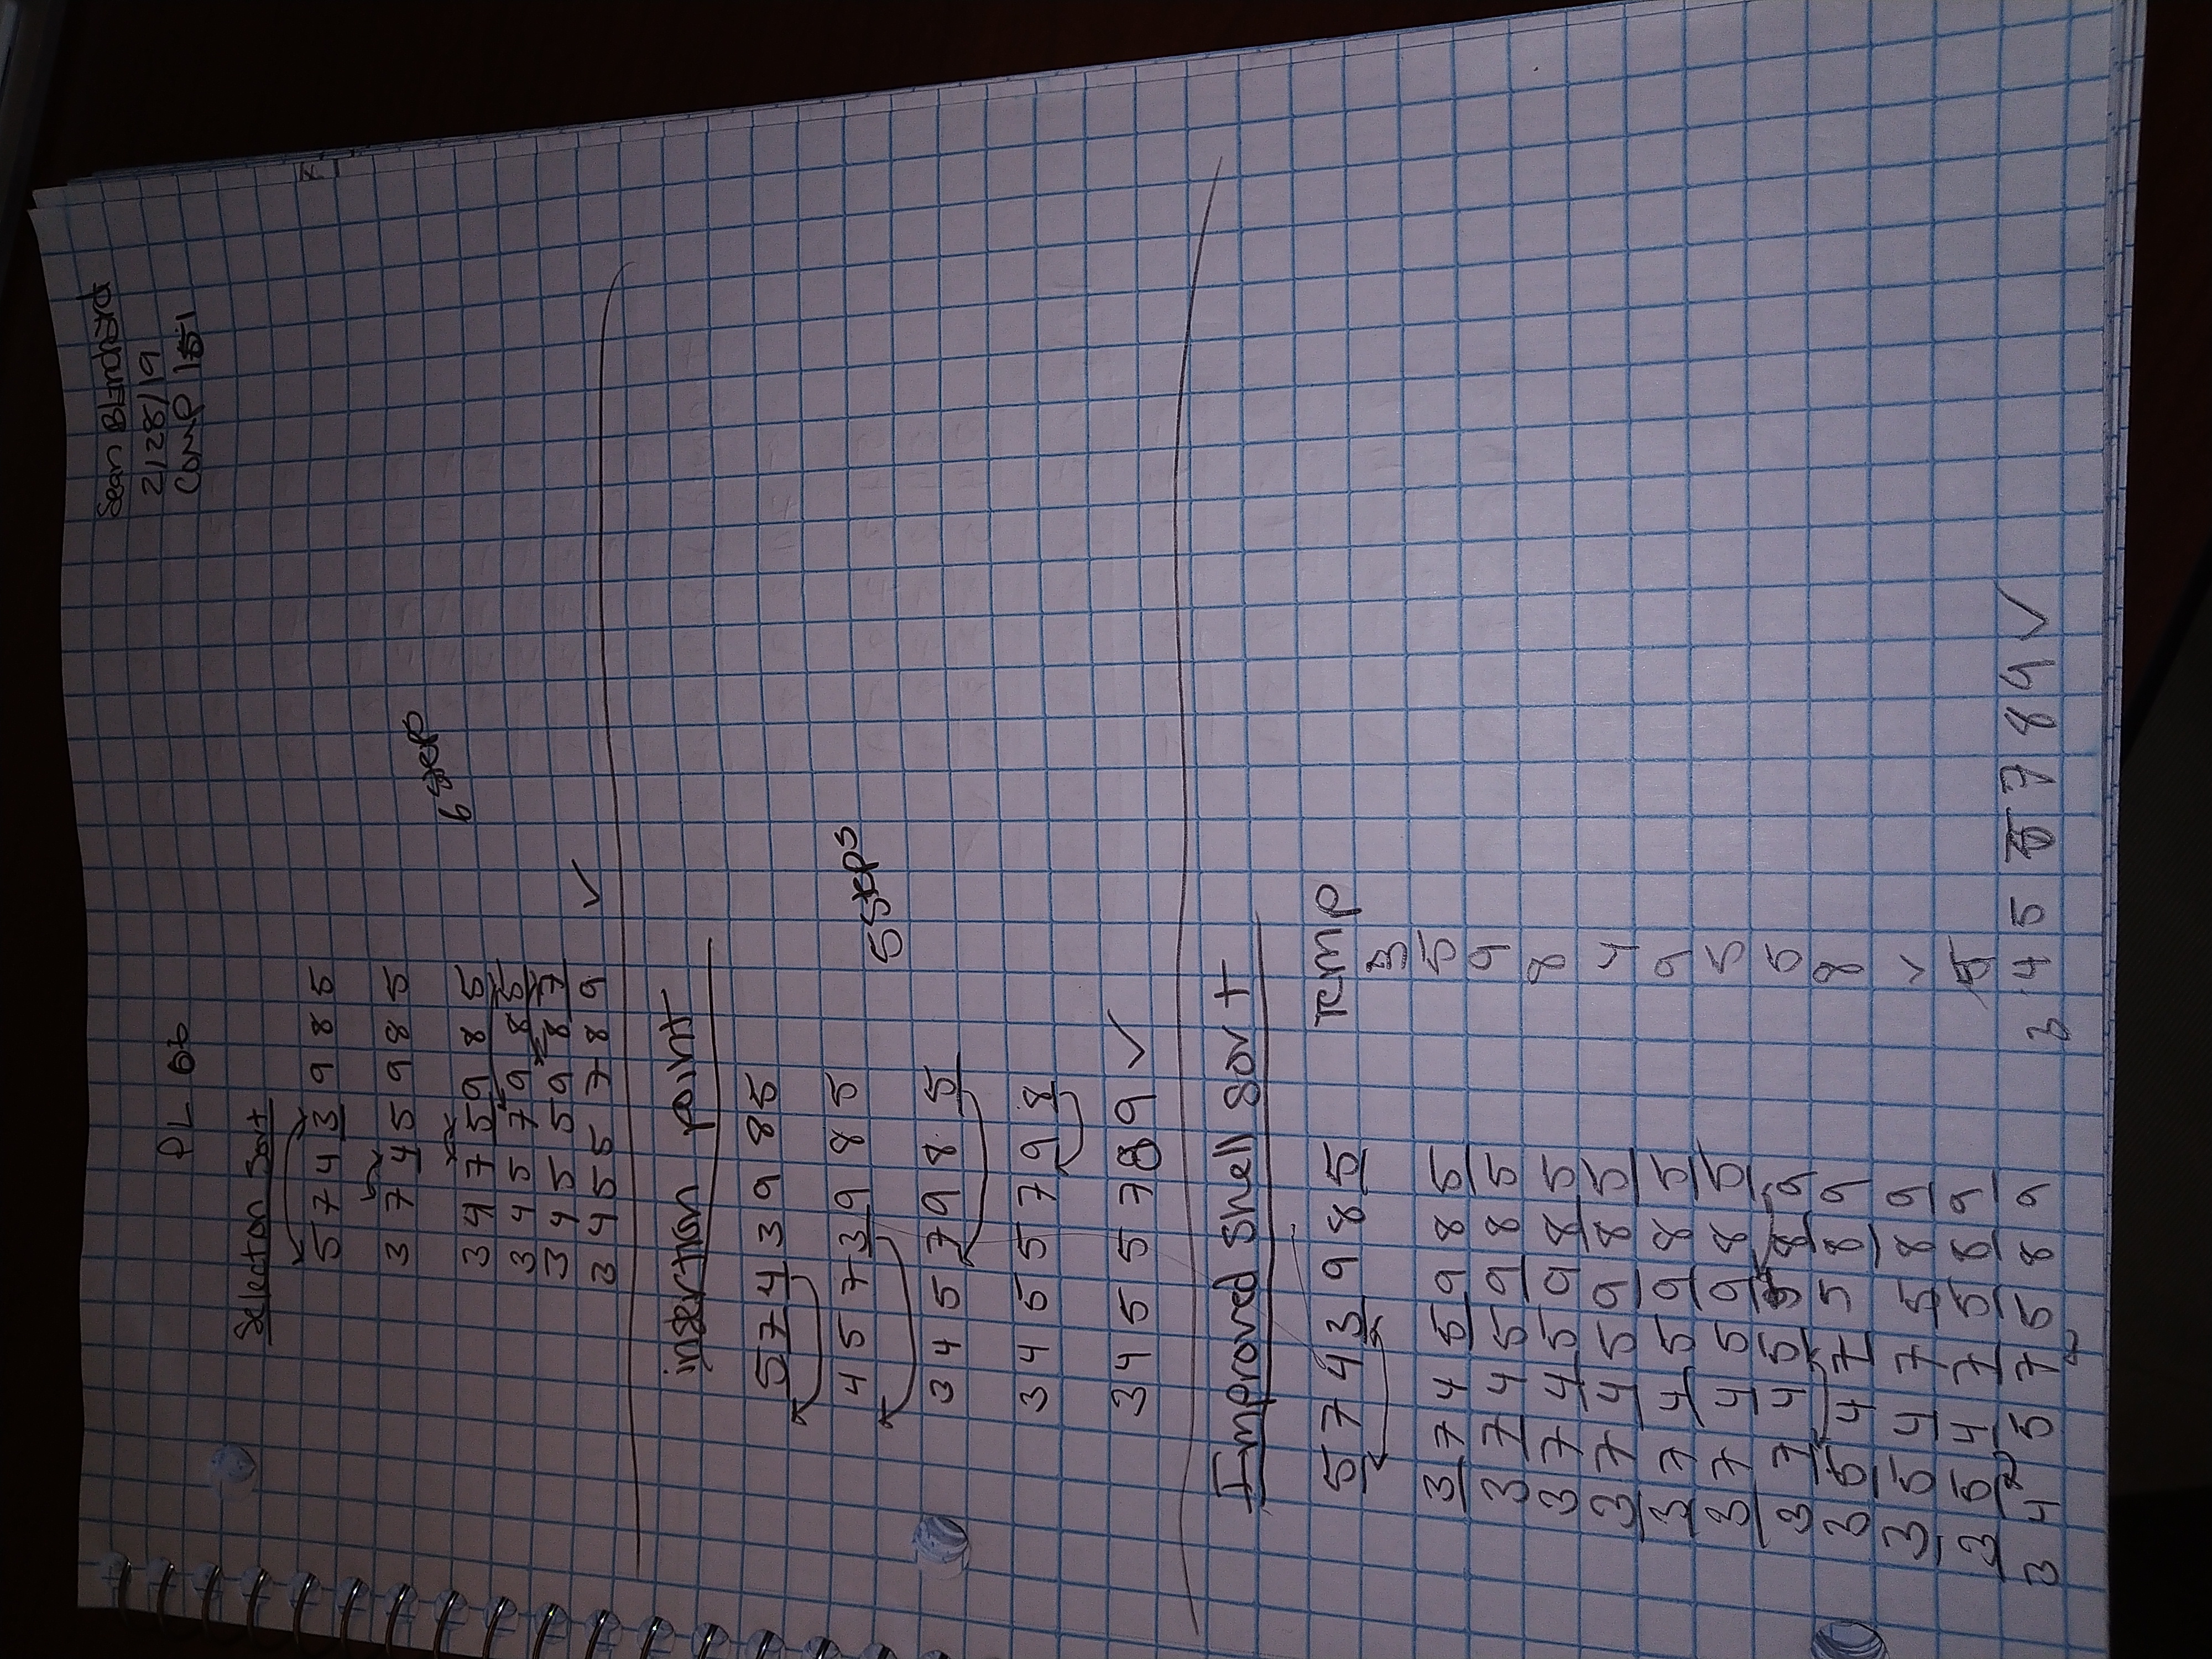 Sean Blanchard
2/28/19
COMP 151
PL 06
Selection Sort
5 7 4 3 9 8 5
3 7 4 5 9 8 5
3 4 7 5 9 8 5
6 steps
3 4 5 7 9 8 5
3 4 5 5 9 8 7
3 4 5 5 7 8 9 ✓
insertion point
5 7 4 3 9 8 5
4 5 7 3 9 8 5
5 steps
3 4 5 7 9 8 5
3 4 5 5 7 9 8
3 4 5 5 7 8 9 ✓
Improved Shell Sort
5 7 4 3 9 8 5 Temp
3
3 7 4 5 9 8 5 5
3 7 4 5 9 8 5 9
3 7 4 5 9 8 5 8
3 7 4 5 9 8 5 4
3 7 4 5 9 8 5 9
3 7 4 5 9 8 5 5
3 7 4 5 5 8 9 5
3 5 4 7 5 8 9 8
3 5 4 7 5 8 9 ✓
3 5 4 7 5 8 9 5
3 4 5 7 5 8 9 3 4 5 5 7 8 9 ✓